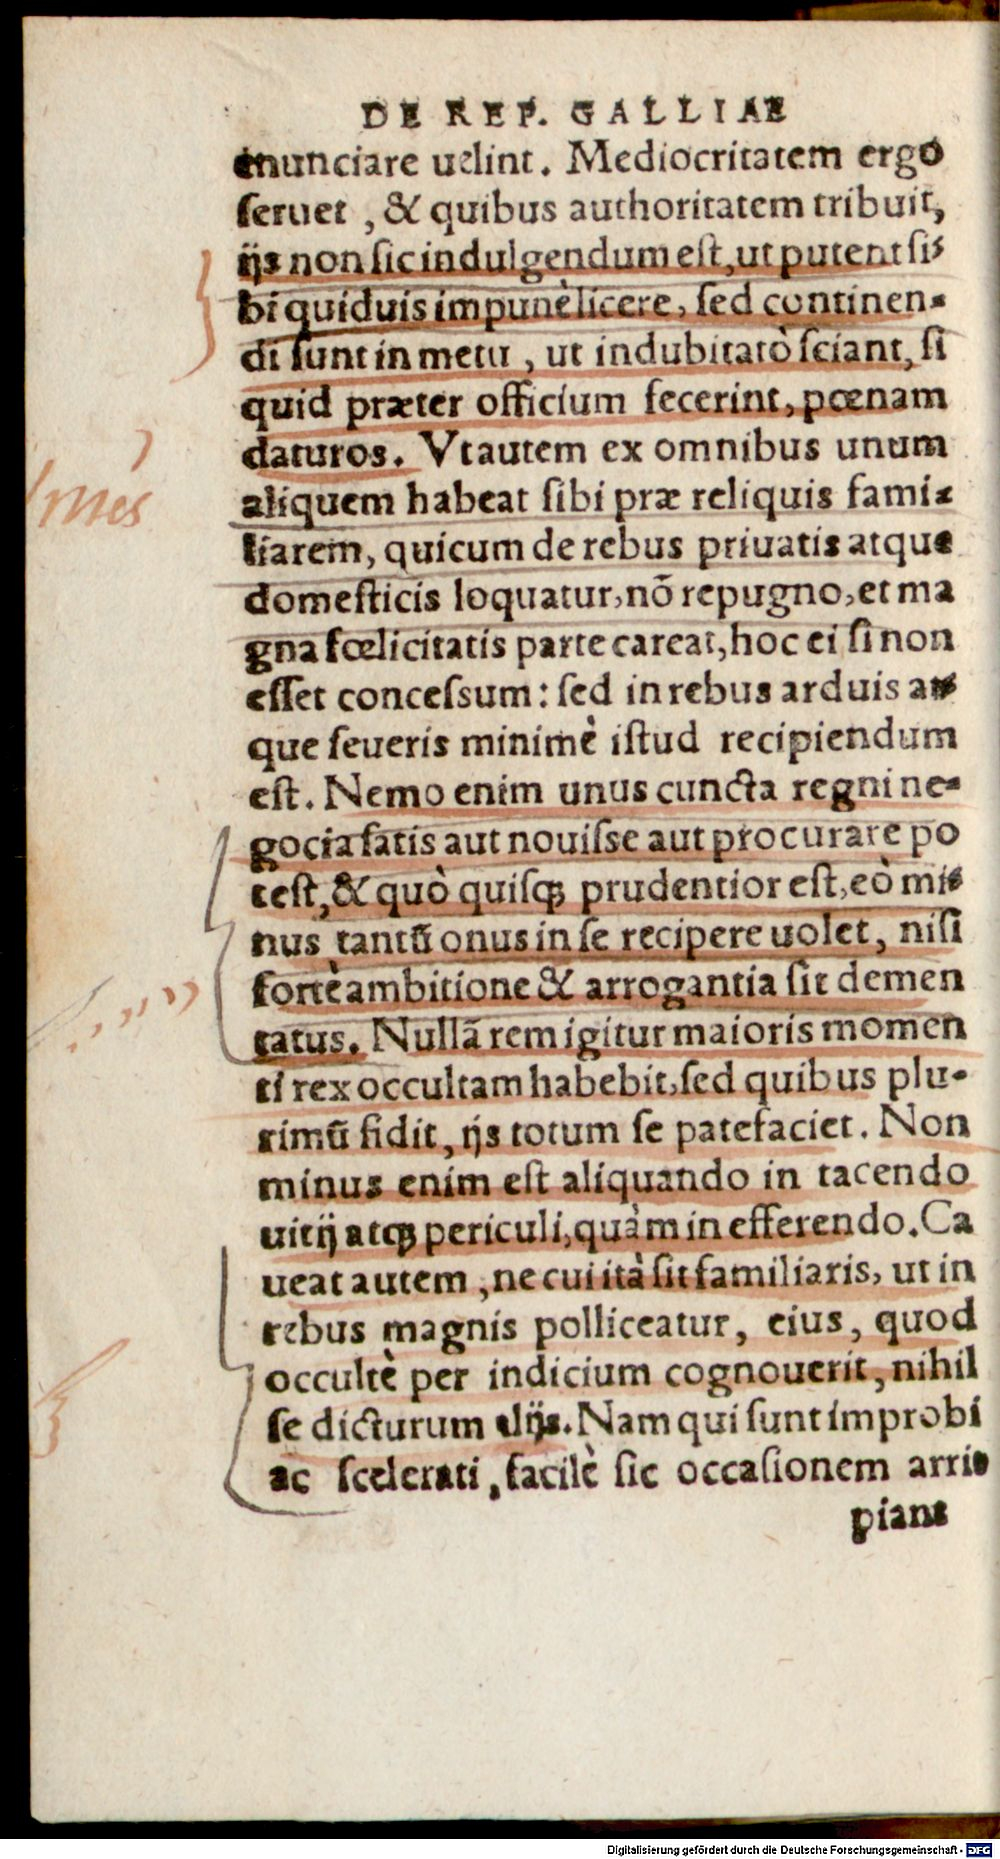 DE REP. GALLIAE
enunciare uelint. Mediocritatem ergo
seruet, & quibus authoritatem tribuit,
ijs non sic indulgendum est, ut putent si-
bi quiduis impunè licere, sed continen-
di sunt in metu, ut indubitatò sciant, si
quid præter officium fecerint, pœnam
daturos. Vt autem ex omnibus unum
aliquem habeat sibi præ reliquis fami-
liarem, quicum de rebus priuatis atque
domesticis loquatur, nõ repugno, et ma
gna fœlicitatis parte careat, hoc ei si non
esset concessum: sed in rebus arduis at-
que seueris minimè istud recipiendum
est. Nemo enim unus cuncta regni ne-
gocia satis aut nouisse aut procurare po
test, & quò quisq; prudentior est, eò mi-
nus tantũ onus in se recipere uolet, nisi
fortè ambitione & arrogantia sit demen
tatus. Nullã rem igitur maioris momen
ti rex occultam habebit, sed quibus plu-
rimũ fidit, ijs totum se patefaciet. Non
minus enim est aliquando in tacendo
uitij atq; periculi, quàm in efferendo. Ca
ueat autem, ne cui ità sit familiaris, ut in
rebus magnis polliceatur, eius, quod
occultè per indicium cognouerit, nihil
se dicturum alijs. Nam qui sunt improbi
ac scelerati, facilè sic occasionem arri-
piant
Digitalisierung gefördert durch die Deutsche Forschungsgemeinschaft - DFG